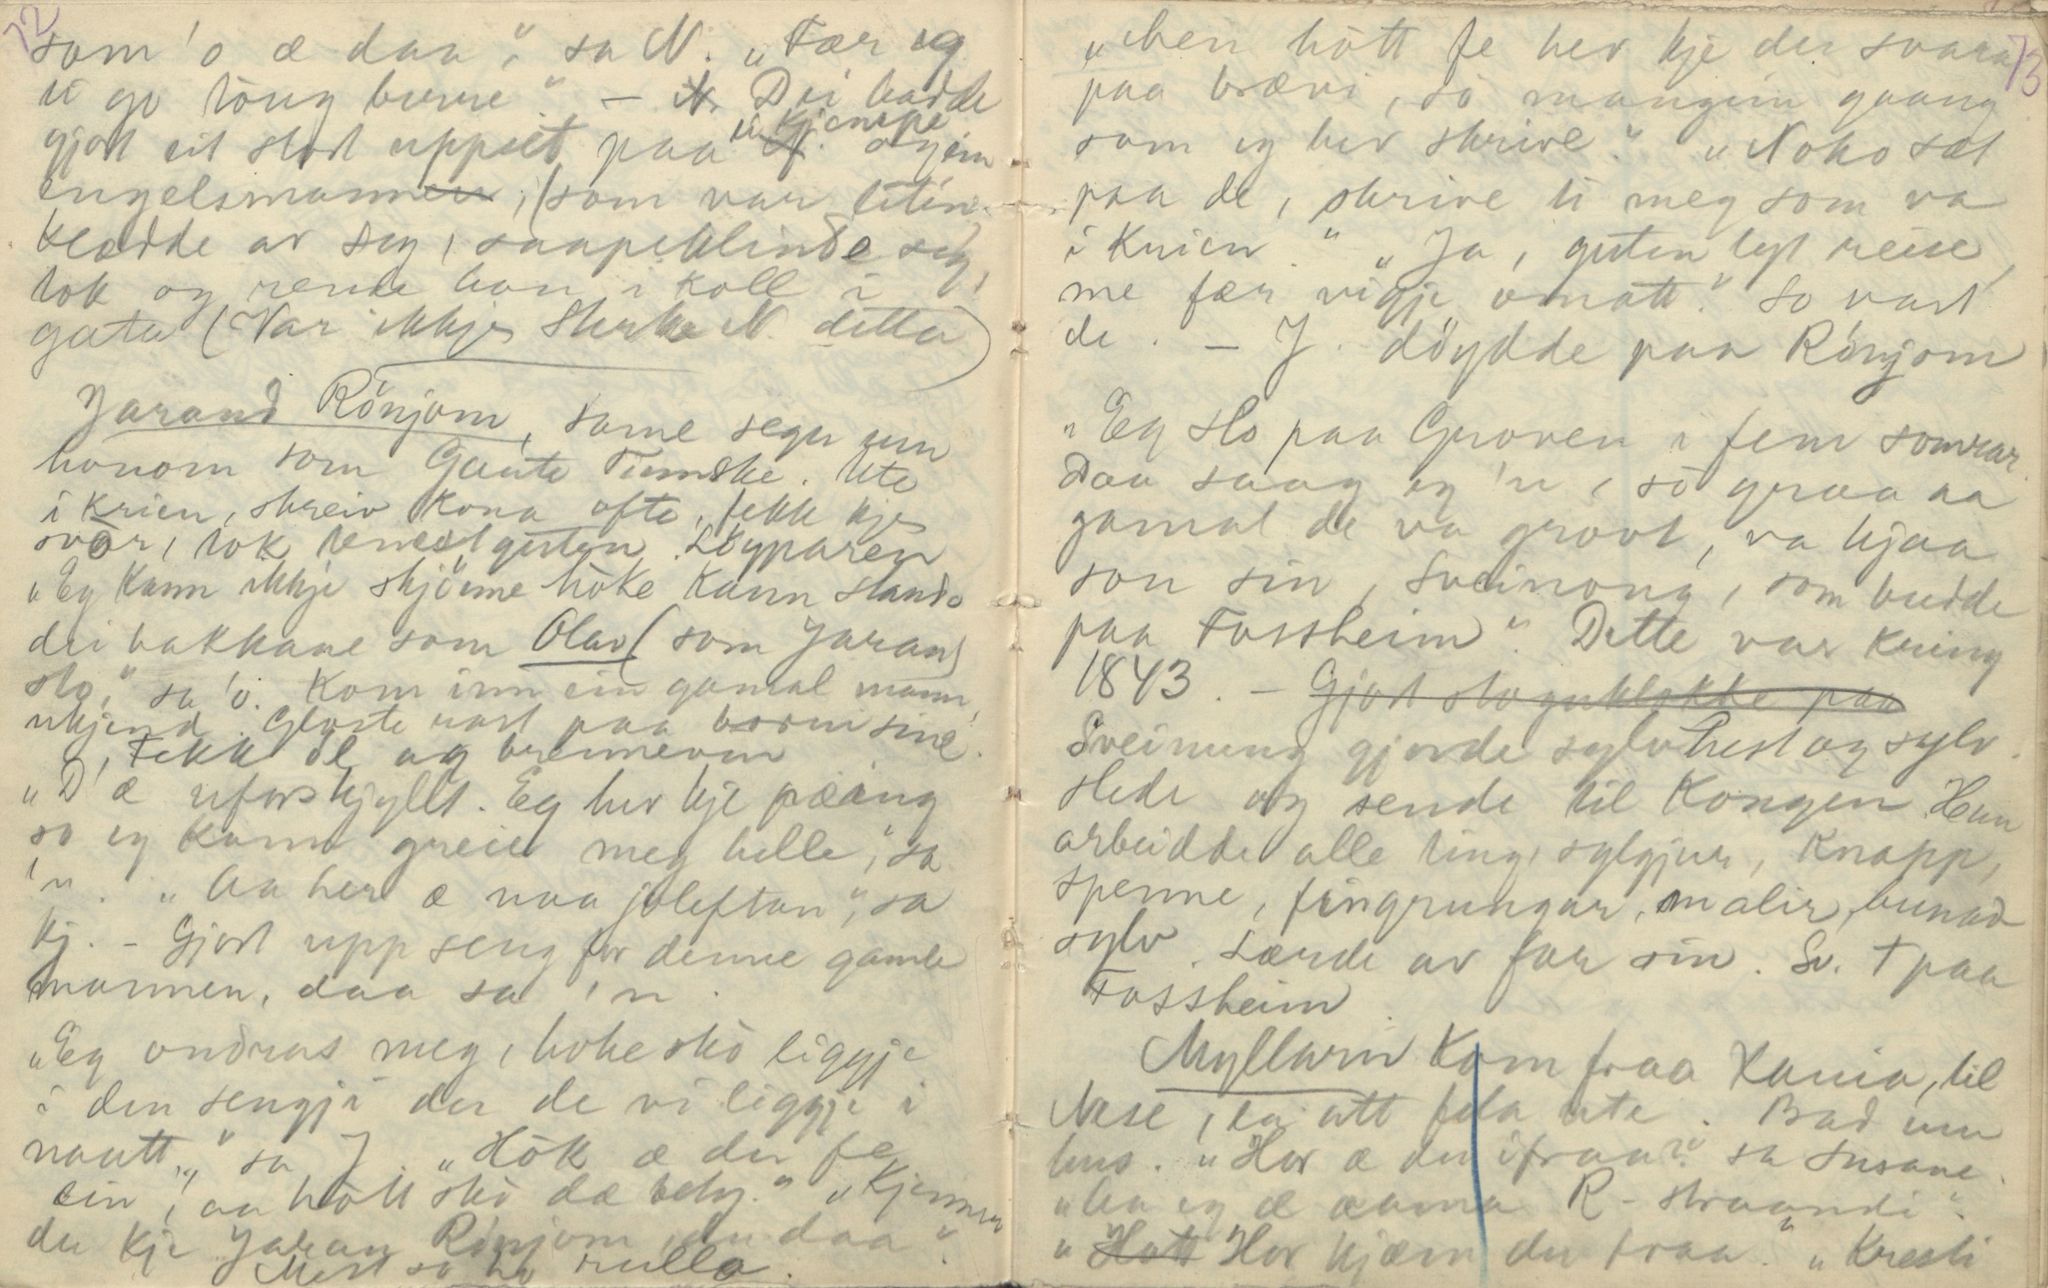 72
som 'o æ daa," sa N. "Fær eg
ti go toug burue" – Dei hadde
gjort eit stort uppsét paa ein Kjempe
engelsmannen, (som var litin.
klædde av seg, saapeklinde seg,
tok og rende han i koll i
gata (Var ikkje Sterke N. detta)
Jarand Rönjom, same segn um
honom som Gaute Timske. Ute
i krien, skreiv kona ofte, fekk kje
svòr, tok tenestguten. Löyparen
"Eg kann ikkje skjöne hòke kann slaa so
dei bakkane som Olav (som Jarand)
slo," sa 'o. Kom inn ein gamal mann,
ukjend. Gløste rast paa borni sine.
Fekk öl og brennevin
"D'æ uforskjyllt. Eg hev kje pæning
so eg kann greie meg helle," sa
'n. "Aa her æ naa joleftan," sa
kj. – Gjort upp seng for denne gamle
mannen, daa sa 'n.
"Eg ondras meg, hoke skò liggje
i den sengji der de vi liggje i
naatt," sa J. "Hòk æ du fe
ein, aa hòtt skò dæ bety." "Kjenner
du kje Jaran Rönjom, du daa".
Mest so ho rulla.
73
"Men hòtt fe hev kje du svara
paa brævi, sò mangein gaang
som eg hev skrive." "Noko sæt
paa de, skrive ti meg som va
i Krien." "Ja, guten lyt reise,
me fær vigje omatt." So vart
de. – J. döydde paa Rönjom
"Eg slo paa Groven i fem somrar.
Daa saag eg 'n, sò graa aa
gamal de va grovt, va hjaa
son sin, Sveinong, som budde
paa Fossheim". Dette var kring
1843. – Gjort stoguklokke paa
Sveinung gjorde sylvhest og sylv
slede og sende til Kongen. Han
arbeidde alle ting, sylgjur, knapp,
spenne, fingrungar, malir, bunad
sylv. Lærde av far sin. Sv. † paa
Fossheim.
Myllarn kom fraa Kania, til
Nese, la att fela ute. Bad um
hus. "Hor æ du ifraa?" sa Susane.
"Aa eg æ auma R-straandi".
"Hott Hor kjæm du fraa." "Kresti